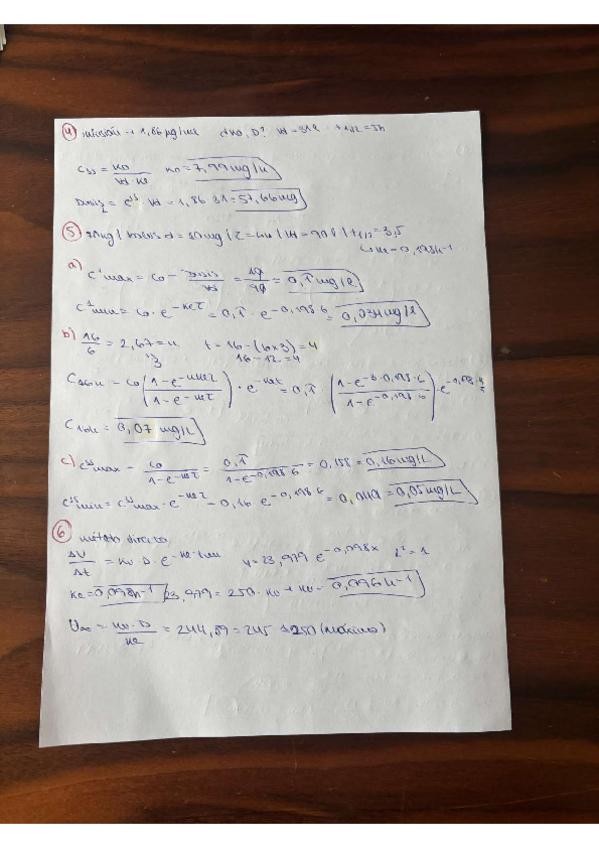 ④ infusión → 1,86 µg/mL ¿K0, D? Vd = 31L t1/2 = 3h
Css = K0 / Vd · Ke K0 = 7,99 mg/h
Dosis = Css · Vd = 1,86 · 31 = 57,66 mg
⑤ Dosis = 10mg / τ = 6h / Vd = 90L / t1/2 = 3,5
Ke = 0,198h-1
a) C1max = C0 = Dosis / Vd = 10 / 90 = 0,1 mg/L
C1min = C0 · e-Keτ = 0,1 · e-0,198·6 = 0,034 mg/L
b) 16 / 6 = 2,67 = n t = 16 - (6×3) = 4
3 16 - 12 = 4
C16h = C0 (1-e-nKeτ / 1-e-Keτ) · e-Ket = 0,1 (1-e-3·0,198·6 / 1-e-0,198·6) · e-0,198·4
C16h = 0,07 mg/L
c) Cssmax = C0 / 1-e-Keτ = 0,1 / 1-e-0,198·6 = 0,158 = 0,16 mg/L
Cssmin = Cssmax · e-Keτ = 0,16 · e-0,198·6 = 0,049 = 0,05 mg/L
⑥ método directo
ΔU / Δt = Ku · D · e-Ke·tm y = 23,979 e-0,098x r² = 1
Ke = 0,098h-1 / 23,979 = 250 · Ku → Ku = 0,096 h-1
U∞ = Ku · D / Ke = 244,89 = 245 250 (máximo)